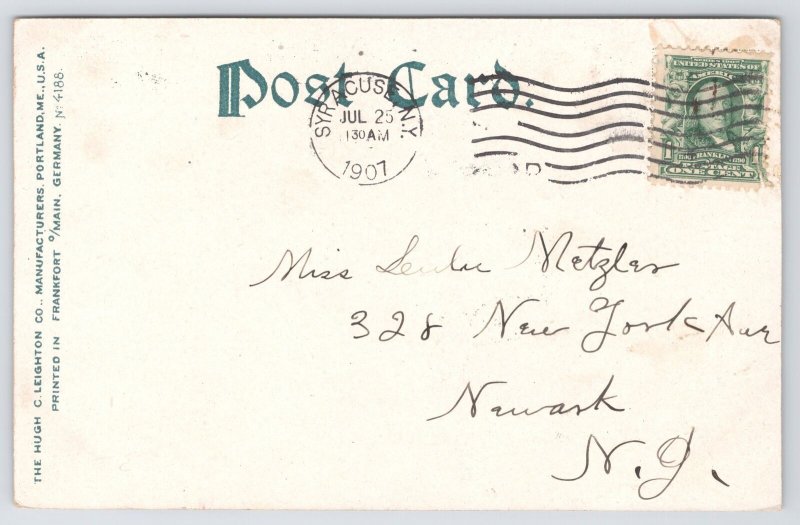 THE HUGH C. LEIGHTON CO., MANUFACTURERS, PORTLAND, ME., U.S.A.
PRINTED IN FRANKFORT o/MAIN, GERMANY. No 4188.
Post Card.
SYRACUSE, N.Y.
JUL 25
130 AM
1907
SERIES 1902
UNITED STATES OF
AMERICA
FRANKLIN
POSTAGE
ONE CENT
Miss Metzler
328 New York Ave
Newark
N. J.